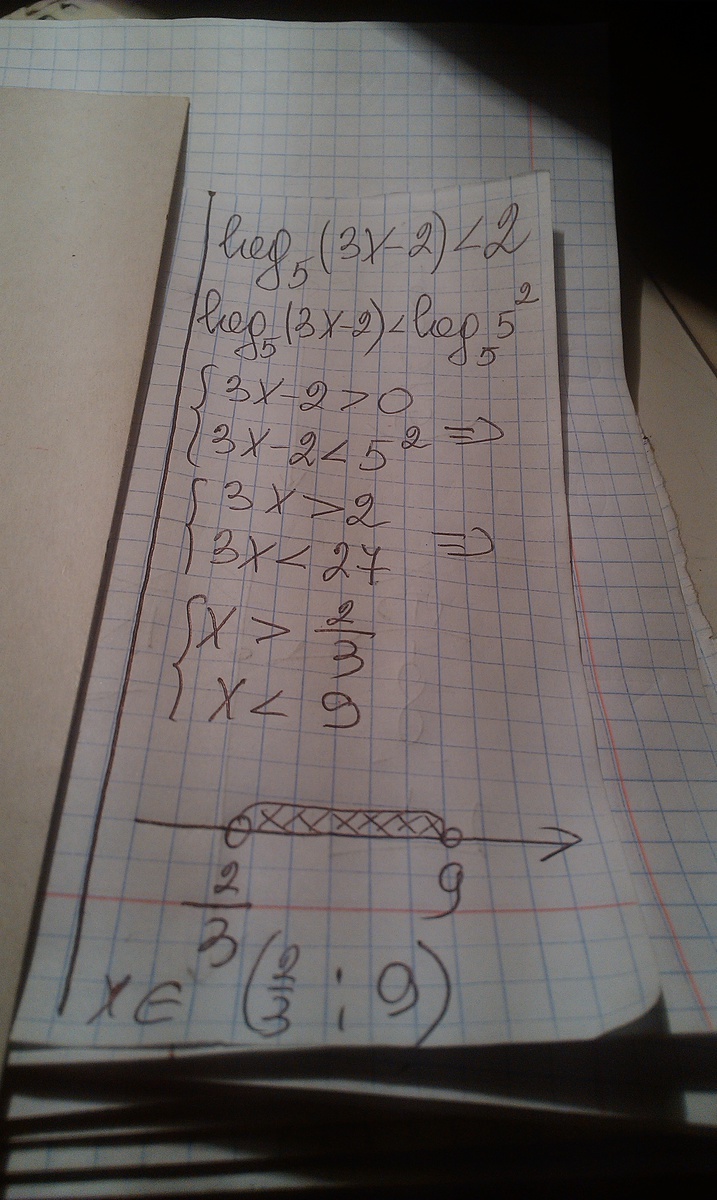 log₅(3x-2)<2
log₅(3x-2)<log₅5²
{3x-2>0
{3x-2<5² =>
{3x>2
{3x<27 =>
{x > 2/3
{x < 9
2/3 9
x∈ (2/3 ; 9)